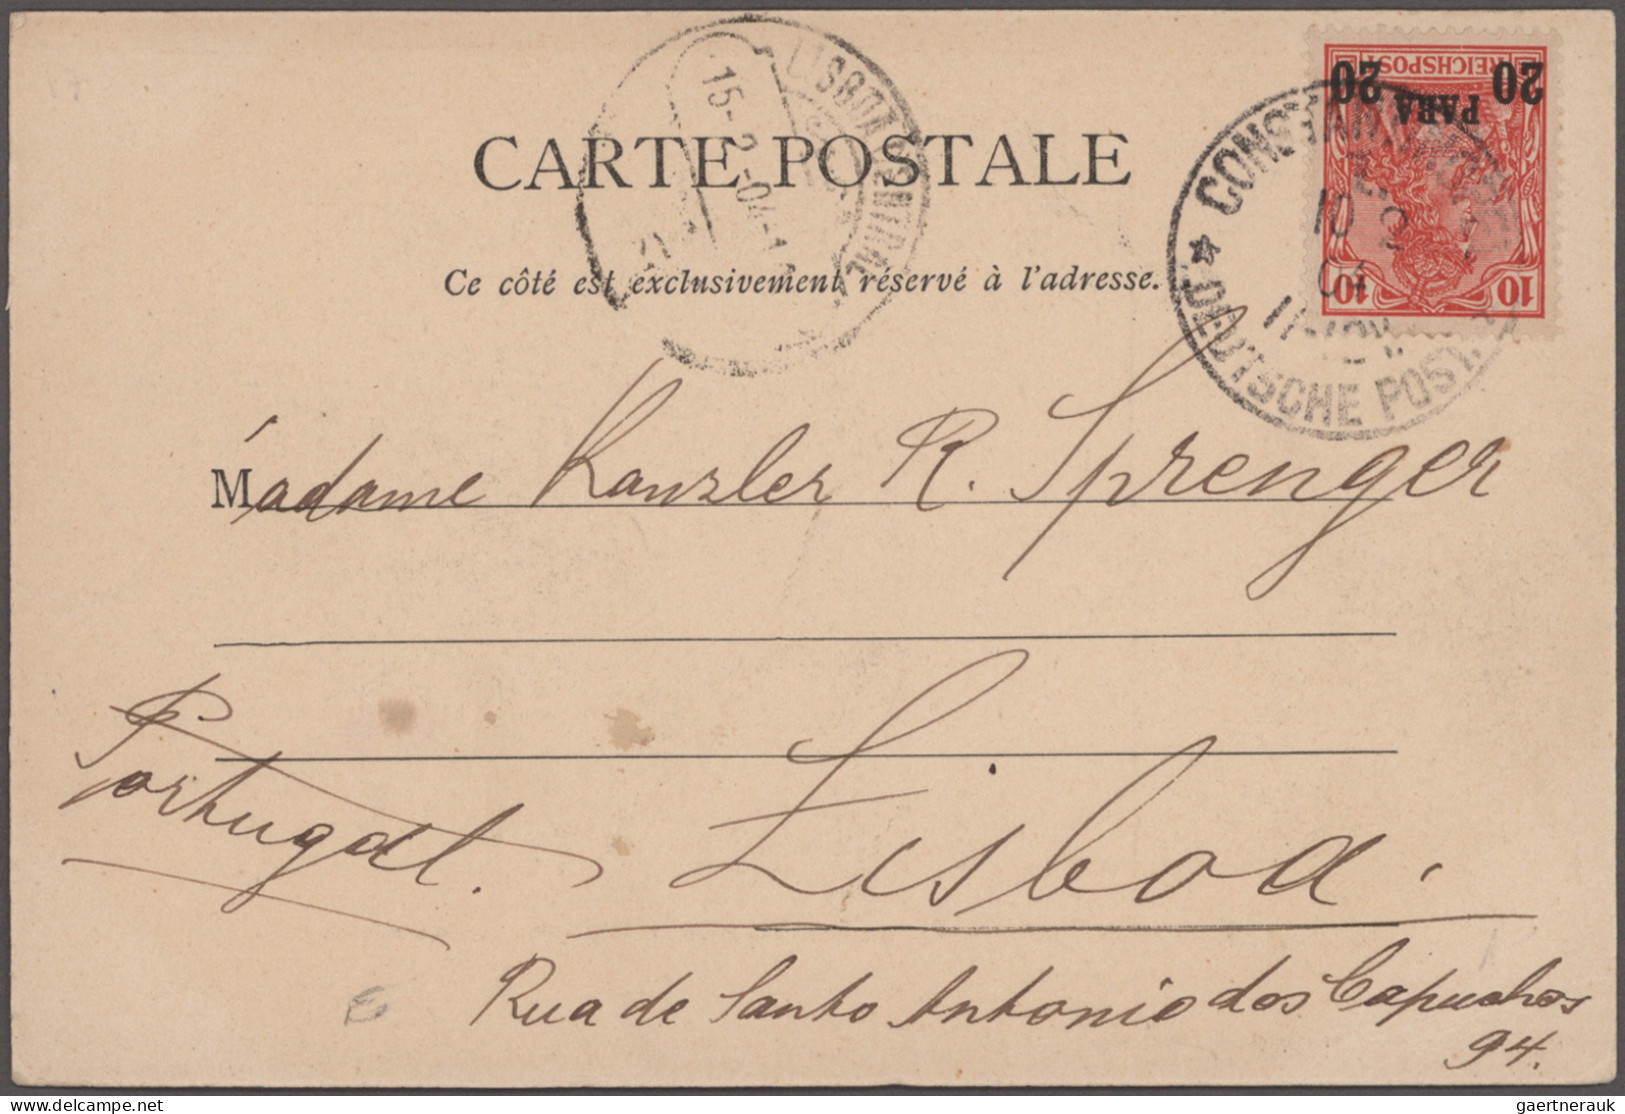 20 PARA 20
REICHSPOST
10 10
CONSTANTINOPEL
10 2
04
DEUTSCHE POST
LISBOA CENTRAL
15-2-04-1
CARTE POSTALE
Ce côté est exclusivement réservé à l'adresse.
Madame Kanzler R. Sprenger
Lisboa.
Portugal.
Rua de Santo Antonio dos Capuchos
94.
gaertnerauk